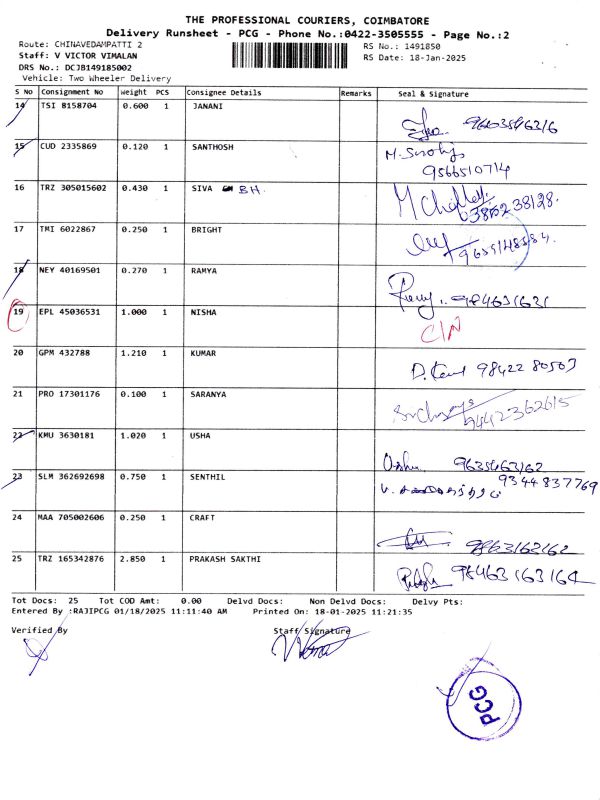 THE PROFESSIONAL COURIERS, COIMBATORE
Delivery Runsheet - PCG - Phone No.:0422-3505555 - Page No.:2
Route: CHINAVEDAMPATTI 2
RS No.: 1491850
Staff: V VICTOR VIMALAN
RS Date: 18-Jan-2025
DRS No.: DCJB149185002
Vehicle: Two Wheeler Delivery
S No Consignment No Weight PCS Consignee Details Remarks Seal & Signature
14 TSI 8158704 0.600 1 JANANI
15 CUD 2335869 0.120 1 SANTHOSH
9566510714
16 TRZ 305015602 0.430 1 SIVA BH.
17 TMI 6022867 0.250 1 BRIGHT
18 NEY 40169501 0.270 1 RAMYA
19 EPL 45036531 1.000 1 NISHA
C/N
20 GPM 432788 1.210 1 KUMAR
21 PRO 17301176 0.100 1 SARANYA
9442362615
22 KMU 3630181 1.020 1 USHA
Usha 9635463162
23 SLM 362692698 0.750 1 SENTHIL
9344837769
24 MAA 705002606 0.250 1 CRAFT
9863163162
25 TRZ 165342876 2.850 1 PRAKASH SAKTHI
Tot Docs: 25 Tot COD Amt: 0.00 Delvd Docs: Non Delvd Docs: Delvy Pts:
Entered By :RAJIPCG 01/18/2025 11:11:40 AM Printed On: 18-01-2025 11:21:35
Verified By
Staff Signature
PCG